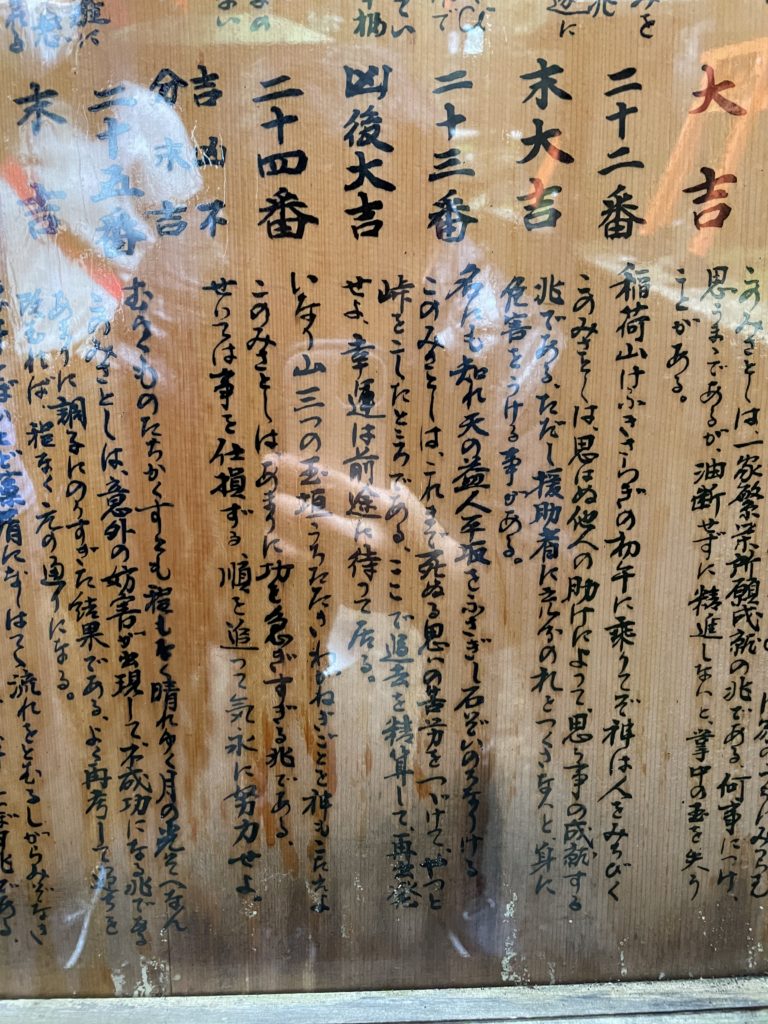 大吉
このみさとしは、一家繁栄所願成就の兆である、何事につけ、
思うまゝであるが、油断せずに精進しないと、掌中の玉を失う
ことがある。
二十二番
末大吉
稲荷山けふきさらぎの初午に乗りてぞ神は人をみちびく
このみさとしは、思はぬ他人の助けによって、思う事の成就する
兆である、ただし援助者に応分の礼をつくさないと、身に
危害をうける事がある。
二十三番
凶後大吉
名にも知れ天の益人平坂をふさぎし石ぞいのちなりける
このみさとしは、これまで死ぬる思いの苦労をつづけて、やっと
峠をこしたところである、ここで過去を精算して、再出発
せよ、幸運は前途に待って居る。
二十四番
吉凶不
分末吉
いなり山三つの玉垣うちたたきわがねぎごとを神もこたえよ
このみさとしはあまりに功を急ぎすぎる兆である、
せいては事を仕損ずる、順を追って気永に努力せよ。
二十五番
末吉
むらくものたちかくすとも程もなく晴れゆく月の光そへなん
このみさとしは、意外の妨害が出現して不成功になる兆である
あまりに調子にのりすぎた結果である、よく再考して過ちを
改むれば、程なく元の通りになる。
流れをとむるしがらみぞなき
兆である、